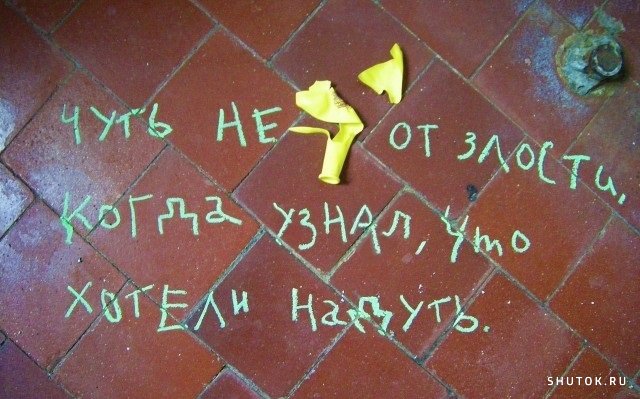 чуть не от злости,
когда узнал, что
хотели надуть.
SHUTOK.RU